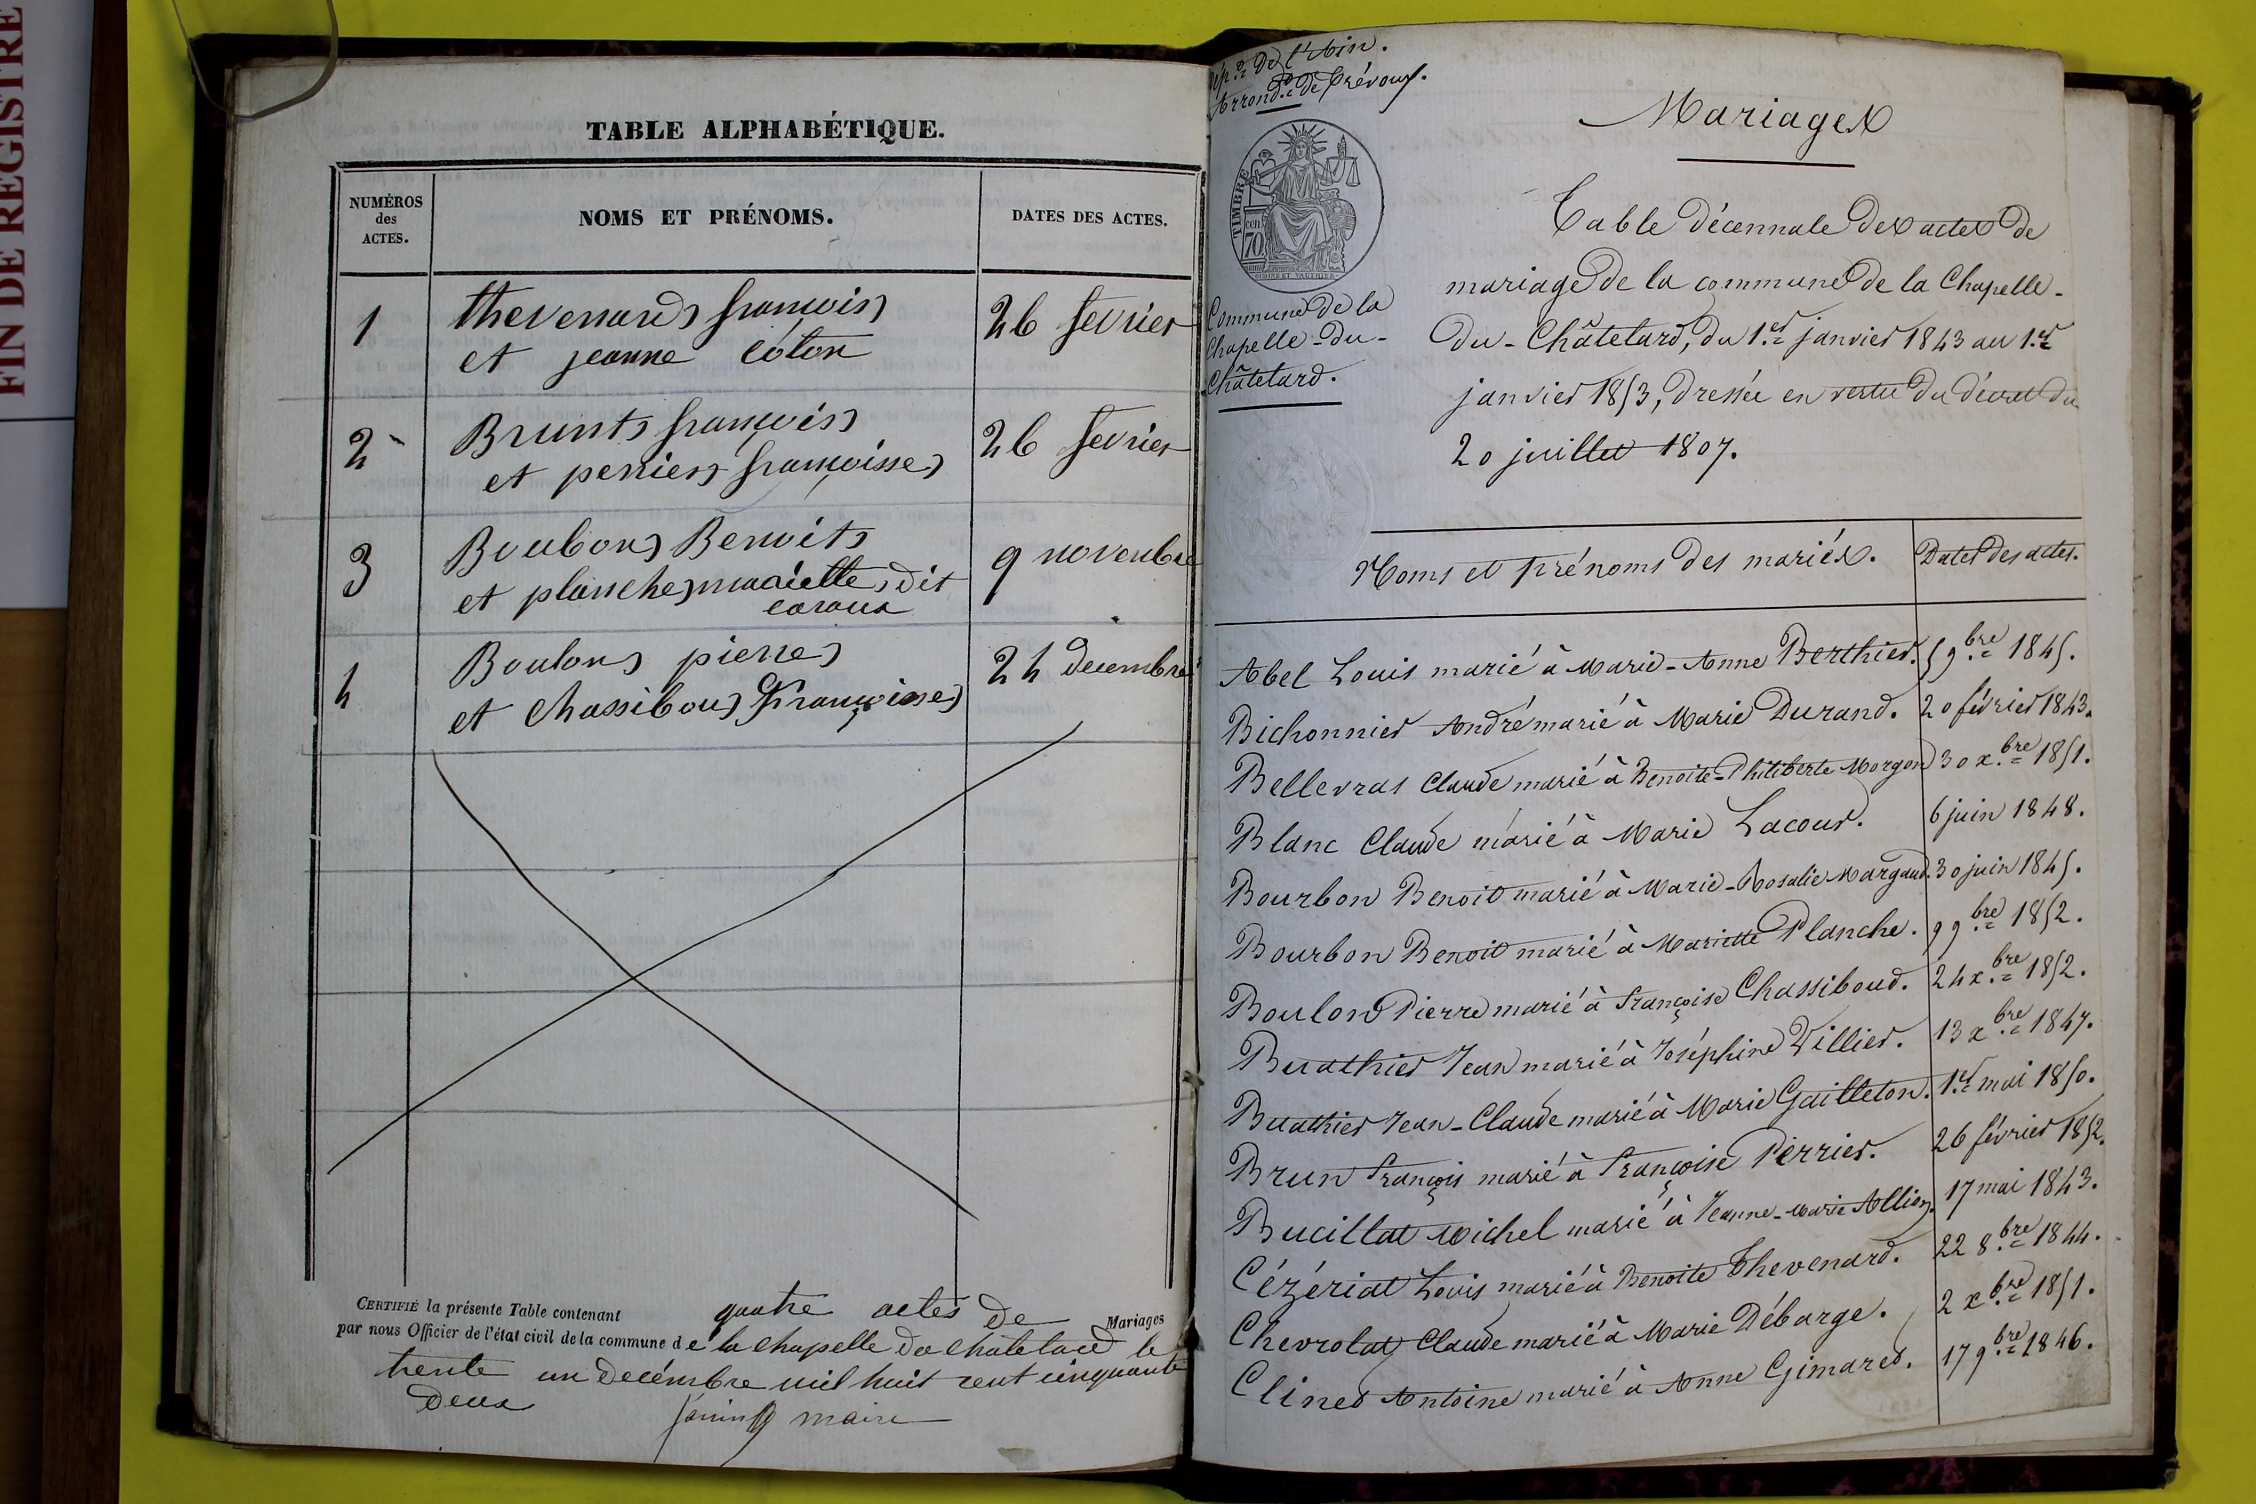 FIN DE REGISTRE
TABLE ALPHABÉTIQUE.
NUMÉROS
des
ACTES.
NOMS ET PRÉNOMS.
DATES DES ACTES.
1
thevenard françois
et jeanne coton
26 fevrier
2
Brunt françois
et perrier françoisse
26 fevrier
3
Boubon Benoit
et planche mariette dit
9 novembre
4
Boulon pierre
et Chassiboud Françoisse
24 decembre
CERTIFIÉ la présente Table contenant quatre actes de Mariages
par nous Officier de l'état civil de la commune de la chapelle du chatelard le
trente un decémbre mil huit cent cinquante
deux
maire
Dép.t de l'Ain.
Arrond.t de Trévoux.
TIMBRE
70
Commune de la
Chapelle-du-
Châtelard.
Mariages
Table décennale des actes de
mariage de la commune de la Chapelle-
du-Châtelard, du 1.er janvier 1843 au 1.er
janvier 1853, dressée en vertu du décret du
20 juillet 1807.
Noms et prénoms des mariés. Dates des actes.
Abel Louis marié à Marie-Anne Berthier. 5 9.bre 1845.
Bichonnier André marié à Marie Durand. 20 février 1843.
Bellevras Claude marié à Benoite-Philiberte Morgon 30 x.bre 1851.
Blanc Claude marié à Marie Lacour. 6 juin 1848.
Bourbon Benoit marié à Marie-Rosalie Margaud. 30 juin 1845.
Bourbon Benoit marié à Mariette Planche. 9 9.bre 1852.
Boulon Pierre marié à françoise Chassiboud. 24 x.bre 1852.
Buathier Jean marié à Joséphine Villier. 13 x.bre 1847.
Buathier Jean-Claude marié à Marie Gailleton. 1.er mai 1850.
Brun françois marié à françoise Perrier. 26 février 1852.
Bucillat Michel marié à Jeanne-Marie Allion. 17 mai 1843.
Cézériat Louis marié à Benoite Thevenard. 22 8.bre 1844.
Chevrolat Claude marié à Marie Débarge. 2 x.bre 1851.
Cliner Antoine marié à Anne Gimaret. 17 9.bre 1846.